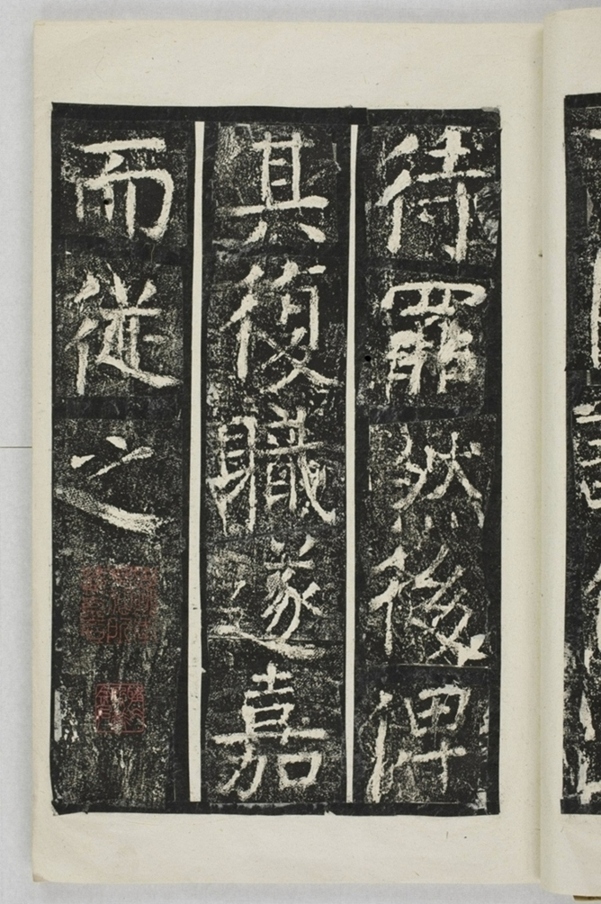 待罪然後俾
其復職遂嘉
而従之